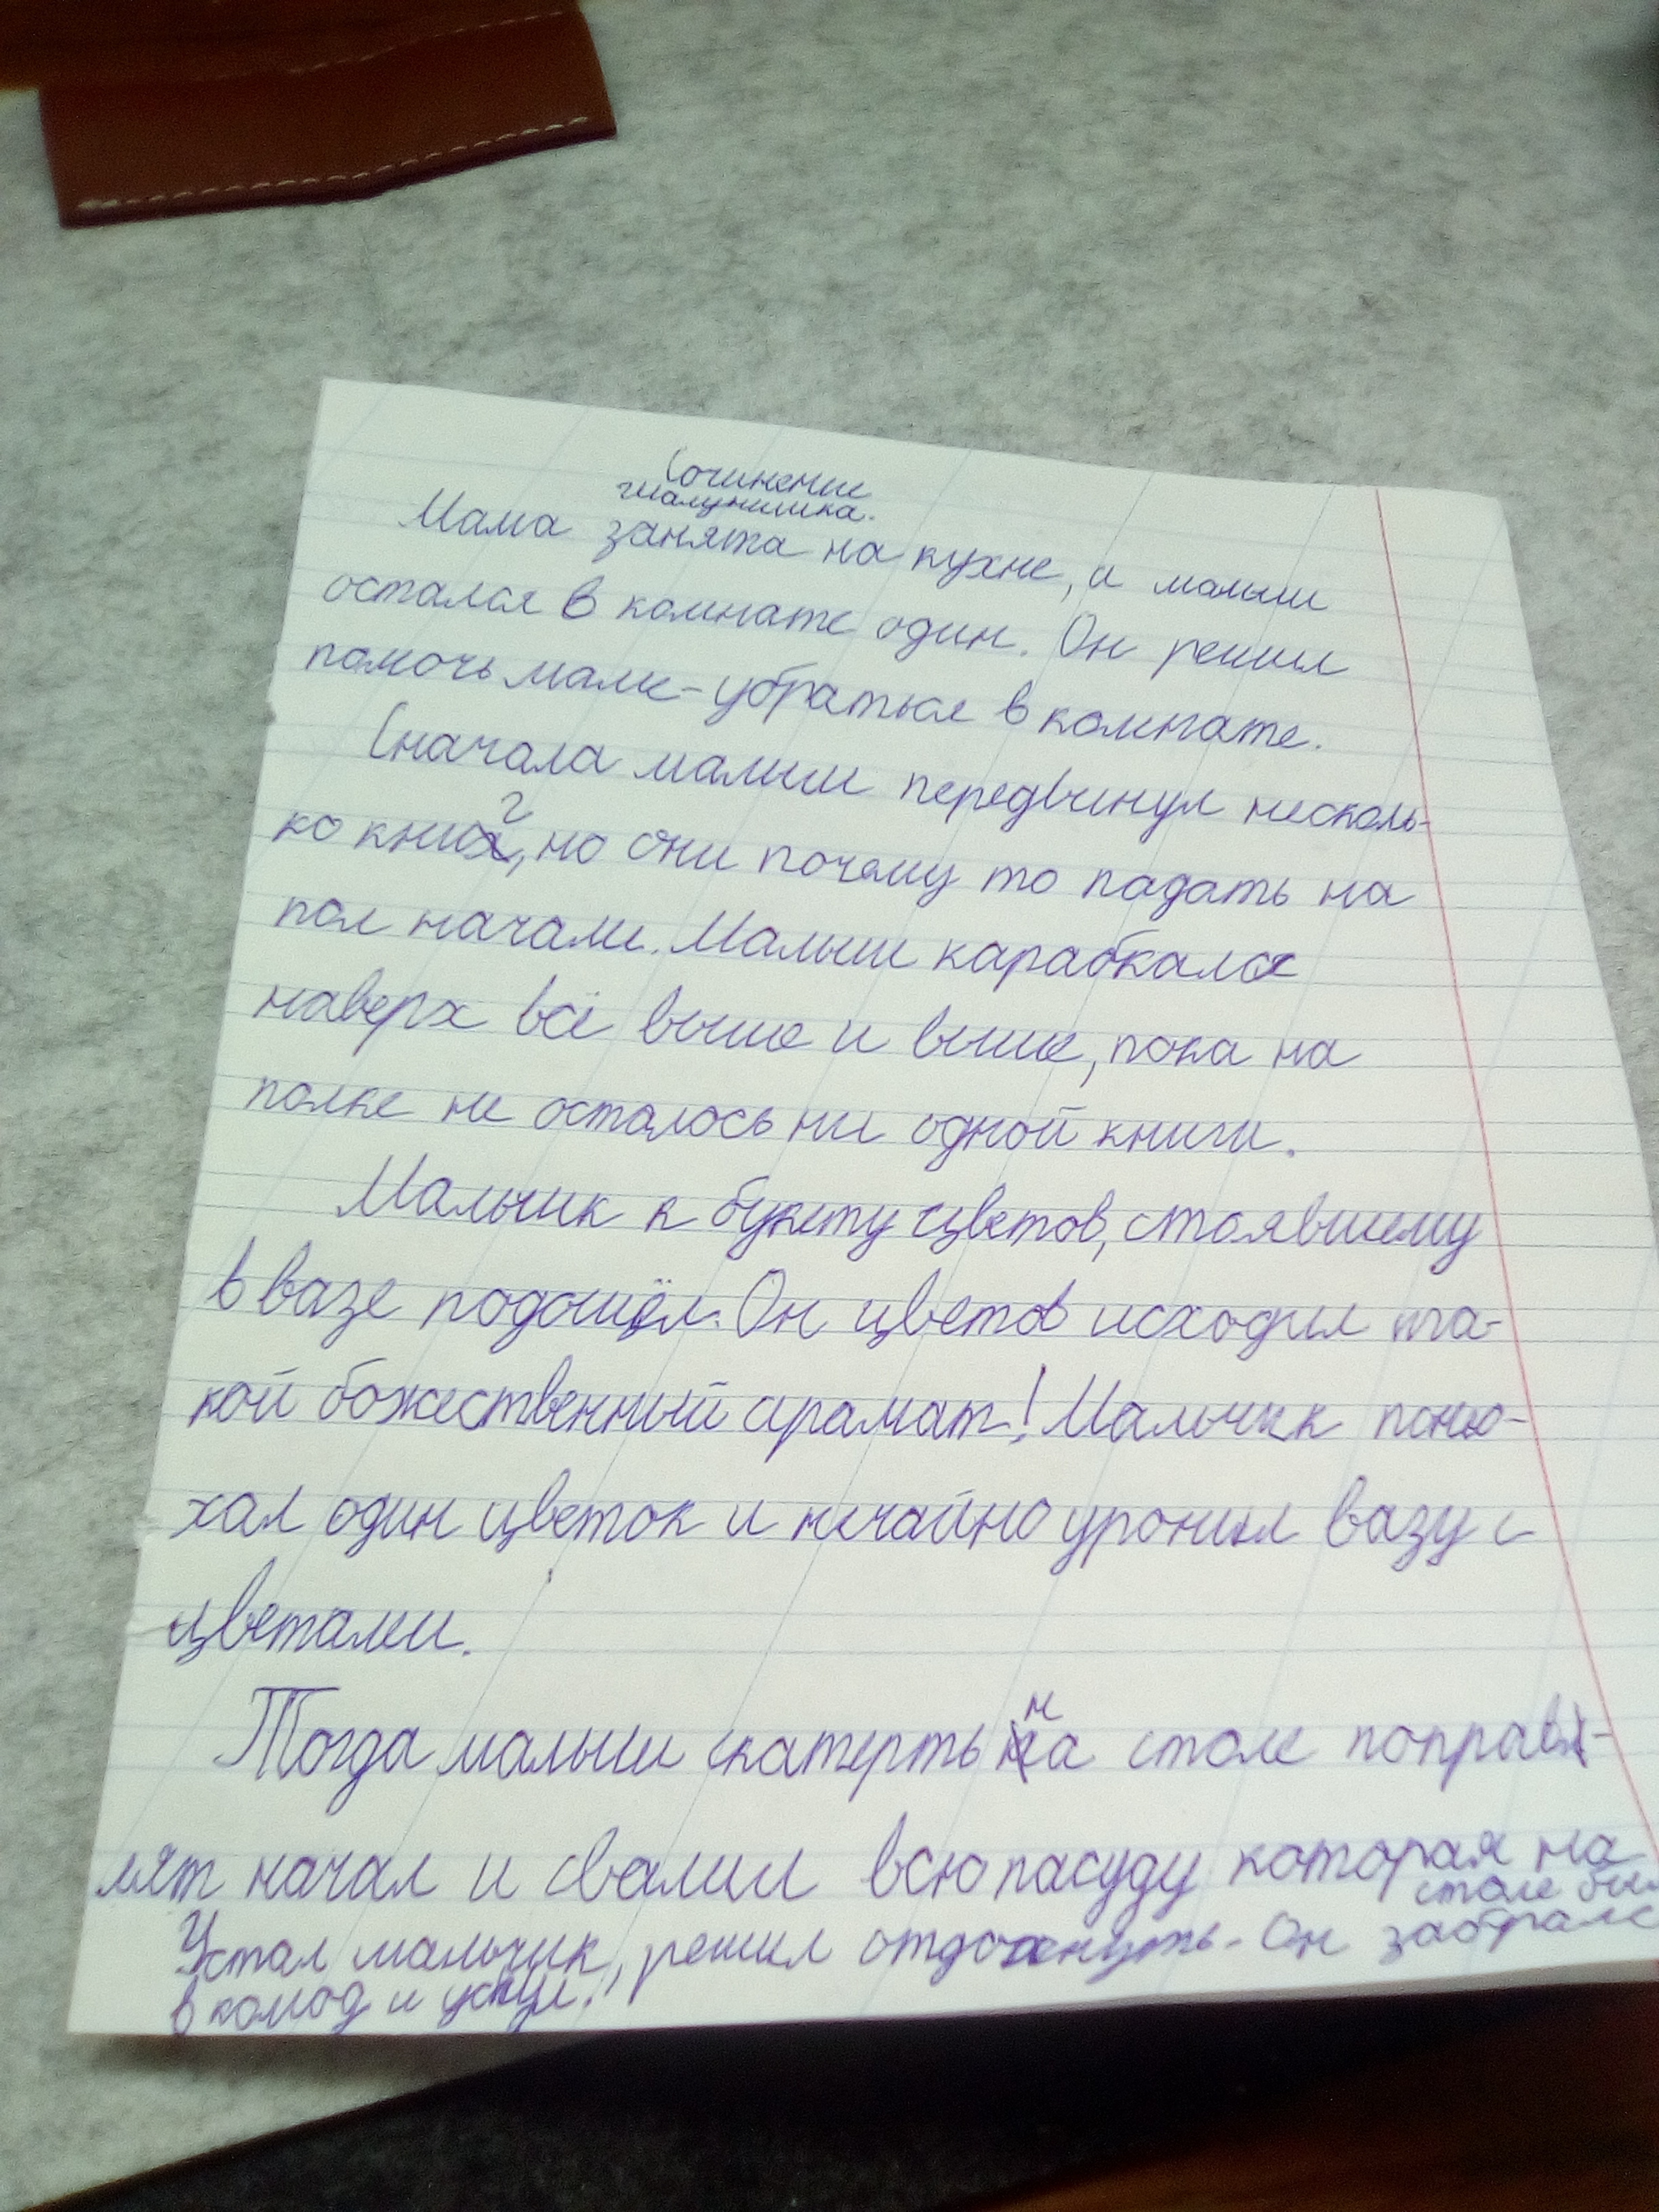 Сочинение
шалунишка.
Мама занята на кухне, и малыш
остался в комнате один. Он решил
помочь маме - убраться в комнате.
Сначала малыш передвинул несколь-
ко книг, но они почему то падать на
пол начали. Малыш карабкался
наверх всё выше и выше, пока на
полке не осталось ни одной книги.
Мальчик к букету цветов, стоявшему
в вазе подошёл. Он цветов исходил та-
кой божественный арамат! Мальчик поню-
хал один цветок и нечайно уронил вазу с
цветами.
Тогда малыш скатерть на столе поправ-
лят начал и свалил всю пасуду которая на
столе бы
Устал мальчик, решил отдохнуть. Он забрался
в комод и уснул!